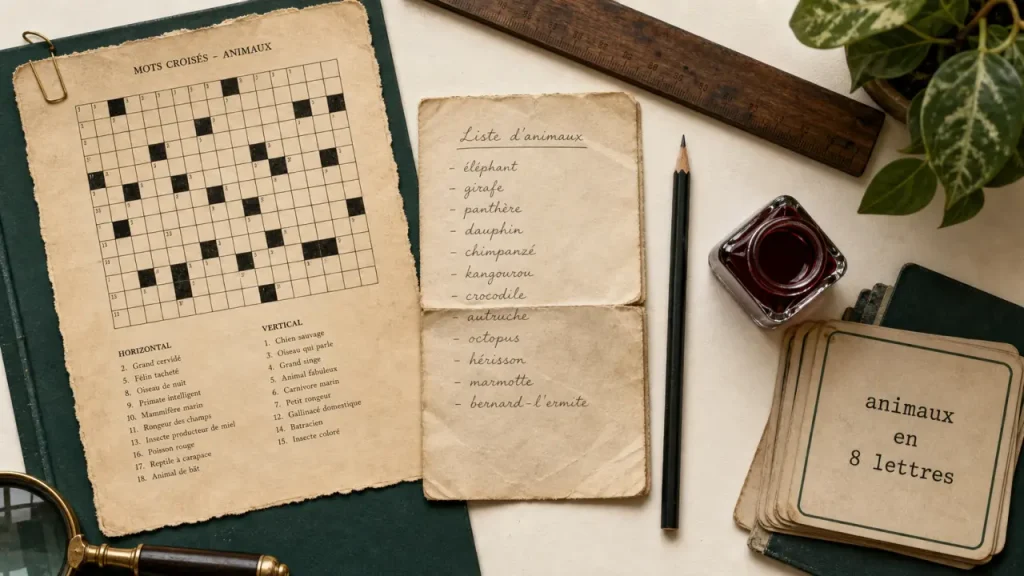 MOTS CROISÉS – ANIMAUX
HORIZONTAL
2. Grand cervidé
5. Félin tacheté
8. Oiseau de nuit
9. Primate intelligent
10. Mammifère marin
11. Rongeur des champs
13. Insecte producteur de miel
16. Poisson rouge
17. Reptile à carapace
18. Animal de bât
VERTICAL
1. Chien sauvage
3. Oiseau qui parle
4. Grand singe
5. Animal fabuleux
6. Carnivore marin
7. Petit rongeur
12. Gallinacé domestique
14. Batracien
15. Insecte coloré
Liste d'animaux
- éléphant
- girafe
- panthère
- dauphin
- chimpanzé
- kangourou
- crocodile
autruche
- octopus
- hérisson
- marmotte
- bernard-l'ermite
animaux
en
8 lettres